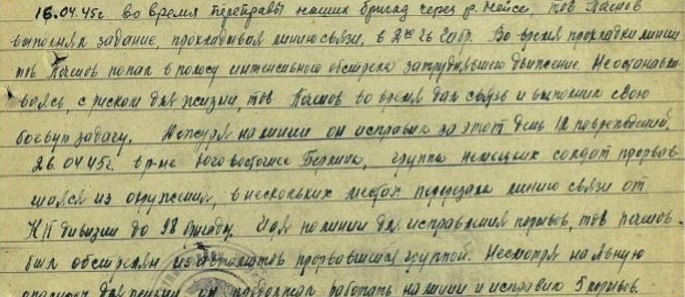 16.04.45г. во время переправы наших бригад через р. Нейсе, тов Пашов
выполняя задание, прокладывая линию связи, в 2ую гв бр. Во время прокладки линии
тов Пашов попал в полосу интенсивного обстрела затруднявшего движение. Не останавли
ваясь, с риском для жизни, тов Пашов во время дал связь и выполнил свою
боевую задачу. Дежуря на линии он исправил за этот день 12 повреждений.
26.04.45г. в р-не юговосточнее Берлина, группа немецких солдат прорвав
шаяся из окружения, в нескольких местах перерезала линию связи от
КП дивизии до 98 бригады. Идя по линии для исправления порывов, тов Пашов.
был обстрелян из автоматов прорвавшейся группой. Несмотря на явную
опасность для жизни он продолжал работать на линии и исправил 5 порывов.